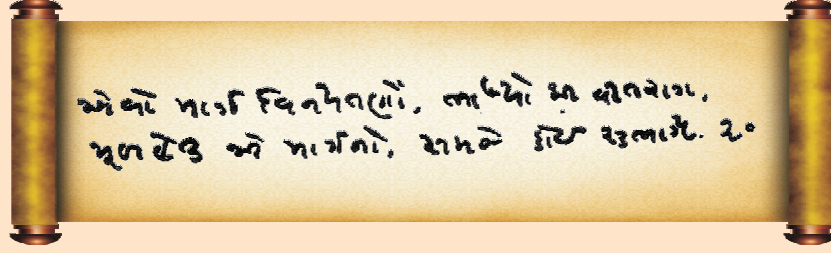 એવો માર્ગ વિનયતણો, ભાખ્યો શ્રી વીતરાગ,
મૂળ હેતુ એ માર્ગનો, સમજે કોઈ સુભાગ્ય. ૨૦